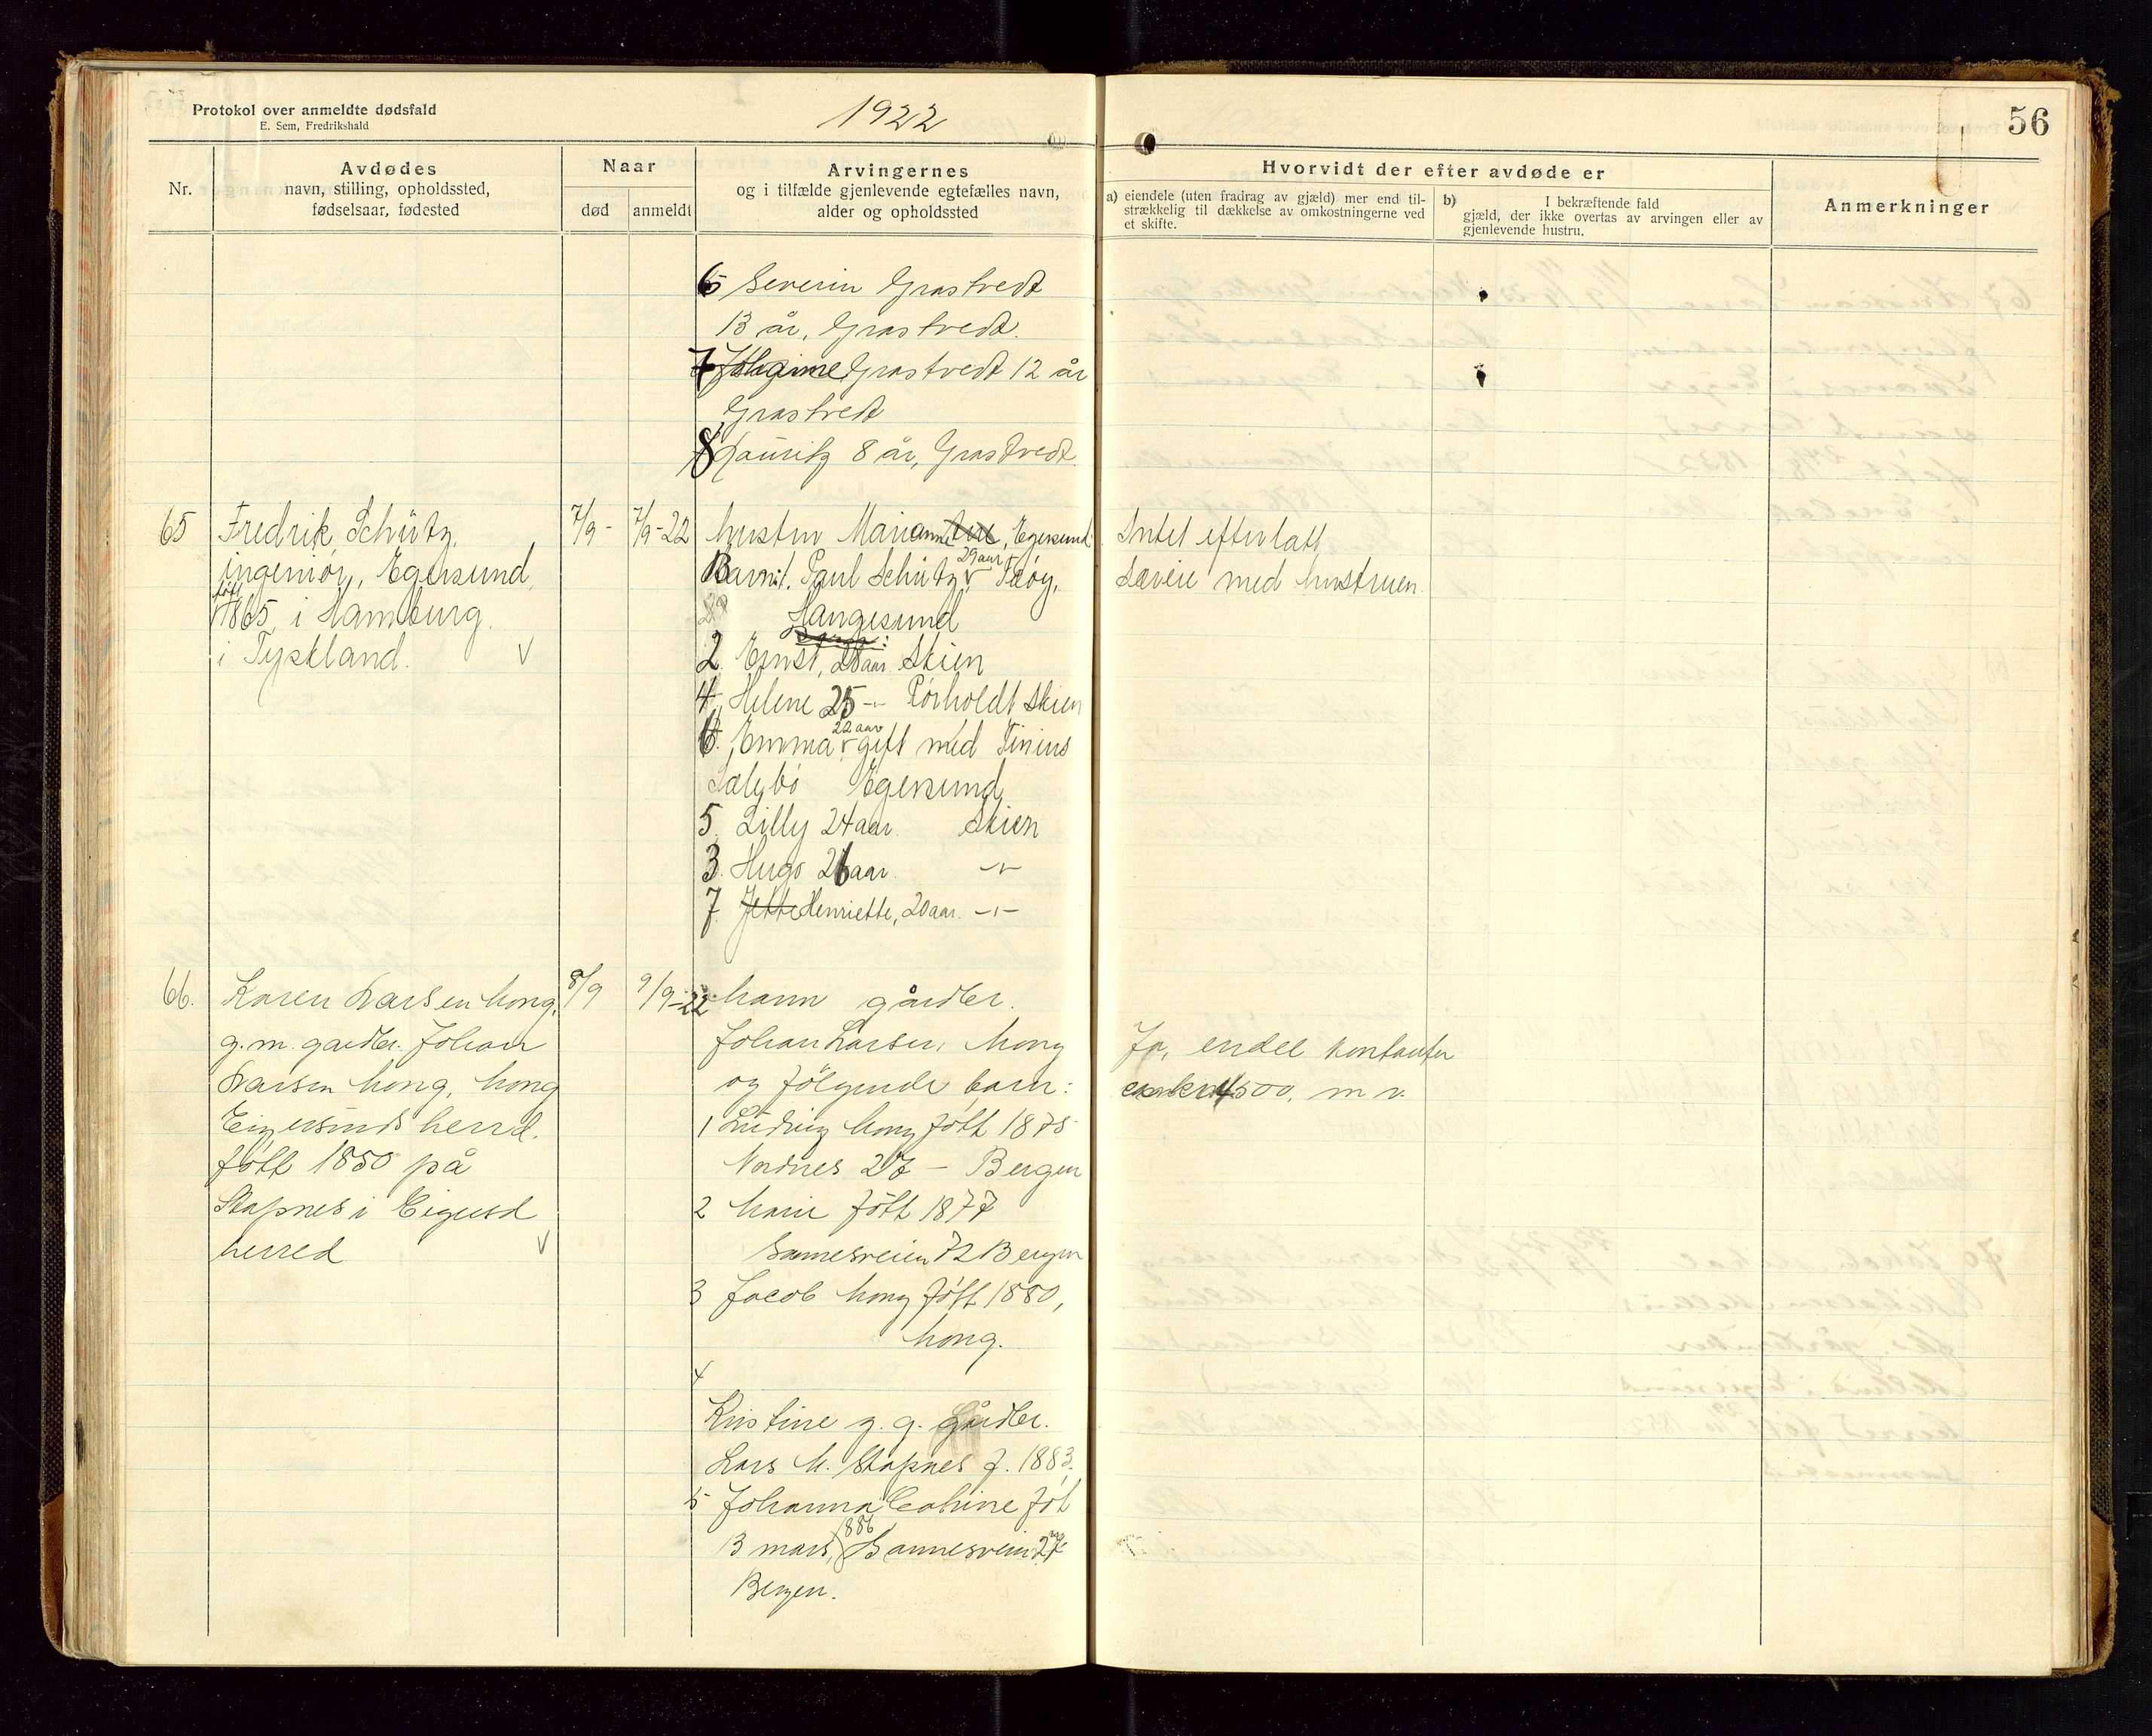 Protokol over anmeldte dødsfald
E. Sem, Fredrikshald
1922
56
Nr.
Avdødes
navn, stilling, opholdssted,
fødselsaar, fødested
Naar
død
anmeldt
Arvingernes
og i tilfælde gjenlevende egtefælles navn,
alder og opholdssted
Hvorvidt der efter avdøde er
a) eiendele (uten fradrag av gjæld) mer end til-
strækkelig til dækkelse av omkostningerne ved
et skifte.
b) I bekræftende fald
gjæld, der ikke overtas av arvingen eller av
gjenlevende hustru.
Anmerkninger
6 Severin Grastvedt
13 år, Grastvedt.
7 Grastvedt 12 år
Grastvedt
8 Lauritz 8 år, Grastvedt
65
Fredrik Schütz,
ingeniør, Egersund,
født
1865, i Hamburg.
i Tyskland. V
7/9 -
7/9-22
hustru Marianne, Egersund
29 aar
Barn: 1. Paul Schütz,
Haugesund
2. Ernst, 28 aar. Skien
4. Helene 25 -"- Porholdt Skien
22 aar
6. Emma gift med Tinius
Egersund
5. Lilly 24 aar. Skien
3. Hugo 26 aar. -"-
7. Jette Henriette, 20 aar. -"-
Intet efterlatt
Særeie med hustruen.
66.
Karen Larsen Mong,
g.m. gardbr. Johan
Larsen Mong, Mong
Eigersunds herred.
født 1850 på
Stapnes i Eigersd
herred V
8/9
9/9-22
Mann gårdbr.
Johan Larsen, Mong
og følgende barn:
1 Ludvig Mong født 1875
Nordnes 27 - Bergen
2 Marie født 1877
Sannesveien 72 Bergen
3 Jacob Mong født 1880,
Mong.
4
Kristine g. g. Gårdbr.
Lars M. Stapnes f. 1883.
5 Johanna Cathine føt
1886
13 mars, Sannesveien 27
Bergen.
Ja, endel kontanter
ca kr 1500, m v.